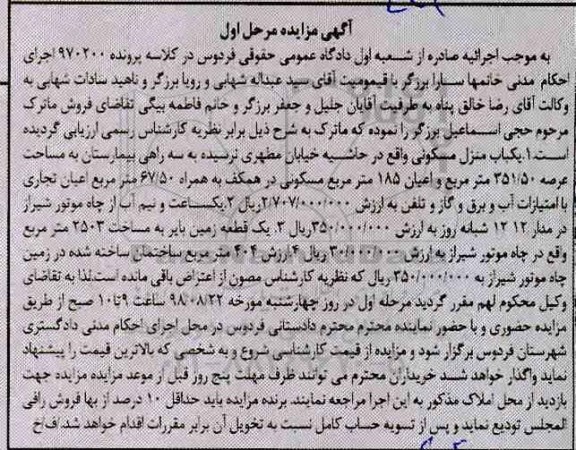 آگهی مزایده مرحل اول
به موجب اجرائیه صادره از شعبه اول دادگاه عمومی حقوقی فردوس در کلاسه پرونده ۹۷۰۲۰۰ اجرای
احکام مدنی خانمها سارا برزگر با قیمومیت آقای سید عبداله شهابی و رویا برزگر و ناهید سادات شهابی به
وکالت آقای رضا خالق پناه به طرفیت آقایان جلیل و جعفر برزگر و خانم فاطمه بیگی تقاضای فروش ماترک
مرحوم حجی اسماعیل برزگر را نموده که ماترک به شرح ذیل برابر نظریه کارشناس رسمی ارزیابی گردیده
است.۱.یکباب منزل مسکونی واقع در حاشیه خیابان مطهری نرسیده به سه راهی بیمارستان به مساحت
عرصه ۳۵۱/۵۰ متر مربع و اعیان ۱۸۵ متر مربع مسکونی در همکف به همراه ۶۷/۵۰ متر مربع اعیان تجاری
با امتیازات آب و برق و گاز و تلفن به ارزش ۲/۷۰۷/۰۰۰/۰۰۰ریال ۲.یکساعت و نیم آب از چاه موتور شیراز
در مدار ۱۲ ۱۲ شبانه روز به ارزش ۳۵۰/۰۰۰/۰۰۰ریال ۳. یک قطعه زمین بایر به مساحت ۲۵۰۳ متر مربع
واقع در چاه موتور شیراز به ارزش ۳۰/۰۰۰/۰۰۰ ریال ۴.ارزش ۴۰۴ متر مربع ساختمان ساخته شده در زمین
چاه موتور شیراز به ۳۵۰/۰۰۰/۰۰۰ ریال که نظریه کارشناس مصون از اعتراض باقی مانده است.لذا به تقاضای
وکیل محکوم لهم مقرر گردید مرحله اول در روز چهارشنبه مورخه ۹۸/۰۸/۲۲ ساعت ۹تا۱۰ صبح از طریق
مزایده حضوری و با حضور نماینده محترم محترم دادستانی فردوس در محل اجرای احکام مدنی دادگستری
شهرستان فردوس برگزار شود و مزایده از قیمت کارشناسی شروع و به شخصی که بالاترین قیمت را پیشنهاد
نماید واگذار خواهد شد خریداران محترم می توانند ظرف مهلت پنج روز قبل از موعد مزایده مزایده جهت
بازدید از محل املاک مذکور به این اجرا مراجعه نمایند. برنده مزایده باید حداقل ۱۰ درصد از بها فروش رافی
المجلس تودیع نماید و پس از تسویه حساب کامل نسبت به تحویل آن برابر مقررات اقدام خواهد شد. ف/خ